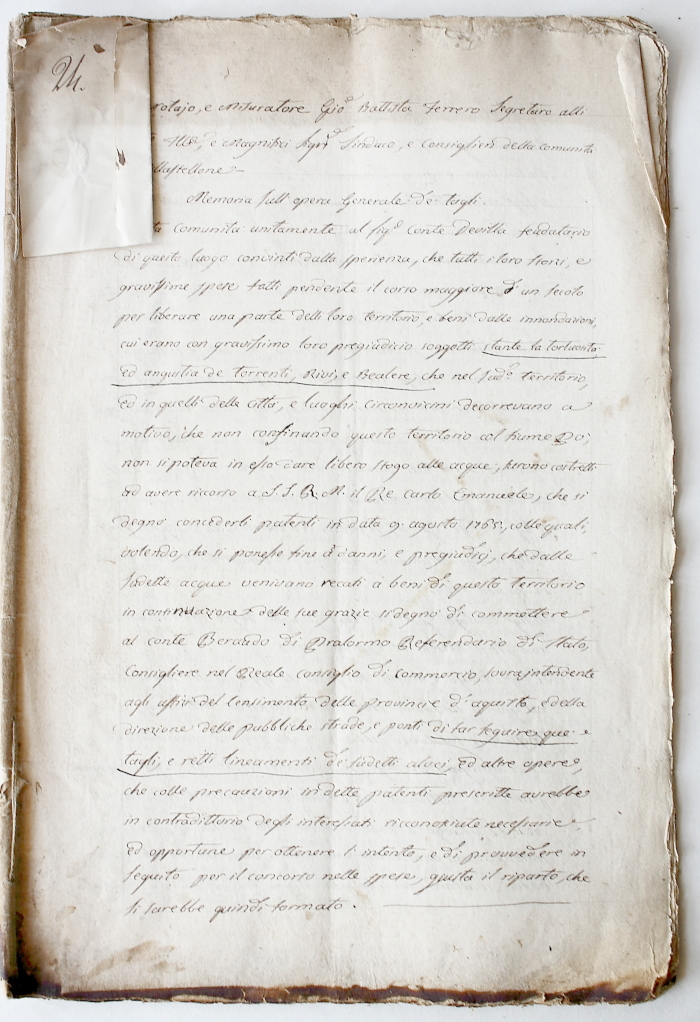 24.
rotajo, e Misuratore Gio. Battista Ferrero Segretaro alli
Ill.ri, e Magnifici Sig.ri Sindaco, e Consiglieri della Comunità
llastellone
Memoria sull'opera Generale de' tagli.
ta Comunità unitamente al Sig.r Conte Devilla feudatario
di questo luogo convinti dalla sperienza, che tutti i loro sforzi, e
gravissime spese fatti pendente il corso maggiore d'un secolo
per liberare una parte delli loro territorio, e beni dalle innondazioni,
cui erano con gravissimo loro pregiudicio soggetti stante la tortuosità
ed angustia de torrenti, Rivi, e Bealere, che nel sud.o territorio,
ed in quelli della Città, e luoghi circonvicini decorrevano a
motivo, che non confinando questo territorio col fiume Po,
non si poteva in esso dare libero sfogo alle acque, furono costretti
ad avere ricorso a S. S. R. M. il Re Carlo Emanuele, che si
degnò concederli patenti in data 9. agosto 1765, colle quali,
volendo, che si ponesse fine a' danni, e pregiudicj, che dalle
sudette acque venivano recati a beni di questo territorio
in continuazione delle sue grazie si degnò di commettere
al Conte Beraudo di Pralormo Referendario di Stato,
Consigliere nel Reale Consiglio di Commercio, sovra intendente
agli uffizi del Censimento delle provincie d'aquisto, e della
direzione delle pubbliche strade, e ponti di far seguire que'
tagli, e retti lineamenti de' sudetti alvei, ed altre opere,
che colle precauzioni in dette patenti prescritte avrebbe
in contradittorio degli interessati ricconosciute necessarie,
ed opportune per ottenere l'intento, e di provvedere in
seguito per il concorso nelle spese, giusta il riparto, che
si sarebbe quindi formato.